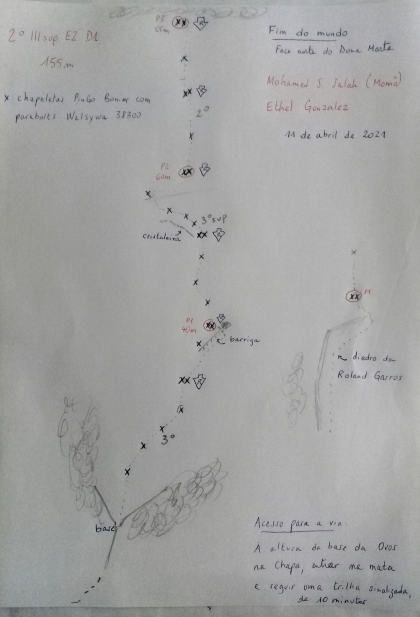 2º IIIsup E2 D1
155m
x chapeletas PinGo Bonier com
parabolts Walsywa 38300
Fim do mundo
Face norte do Dona Marta
Mohamed S. Salah (Momô)
Ethel Gonzalez
11 de abril de 2021
P3
55m
2º
P2
60m
3ºsup
cristaleira
P1
40m
barriga
3º
base
P1
diedro da
Roland Garros
Acesso para a via:
A altura da base da Ovos
na Chapa, entrar na mata
e seguir uma trilha sinalizada,
de 10 minutos